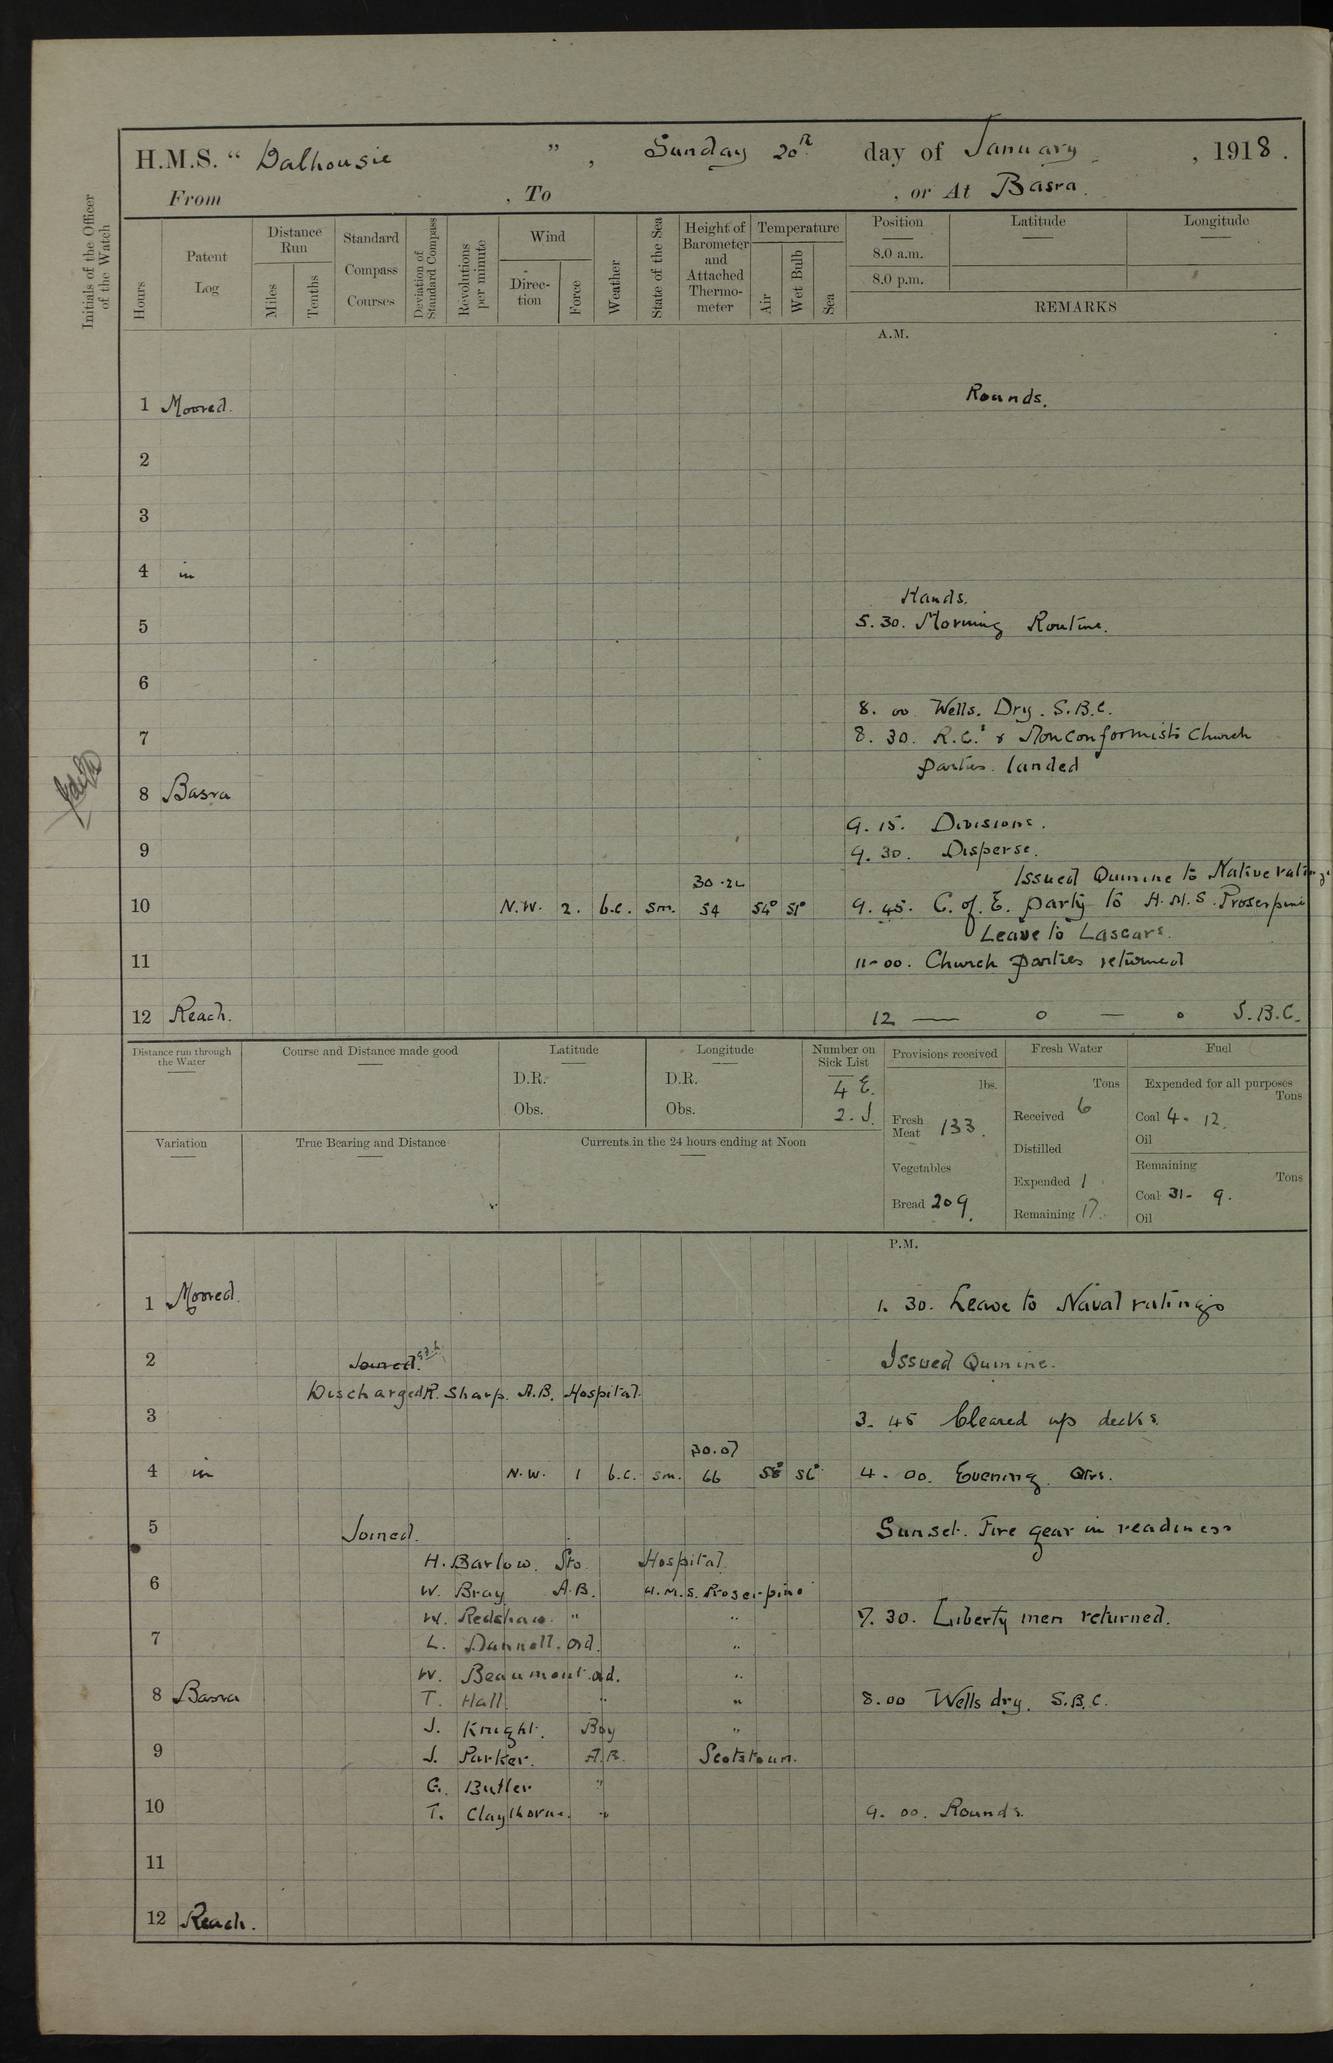 H.M.S. " Dalhousie " , Sunday 20th day of January , 1918 .
From , To , or At Basra .
Initials of the Officer of the Watch
Hours
Patent Log
Distance Run
Miles
Tenths
Standard Compass Courses
Deviation of Standard Compass
Revolutions per minute
Wind
Direction
Force
Weather
State of the Sea
Height of Barometer and Attached Thermometer
Temperature
Air
Wet Bulb
Sea
Position Latitude Longitude
8.0 a.m.
8.0 p.m.
REMARKS
A.M.
1 Moored. Rounds.
2
3
4 in
Hands.
5 5.30. Morning Routine.
6
8.00 Wells. Dry. S.B.C.
7 8.30. R.C.s & Nonconformists Church
parties landed
8 Basra
9.15. Divisions.
9 9.30. Disperse.
Issued Quinine to Native ratings
30.24
10 N.W. 2. b.c. sm. 54 54° 51° 9.45. C. of E. party to H.M.S. Proserpine
Leave to Lascars.
11 11-00. Church parties returned
12 Reach. 12 — o — o S.B.C.
Distance run through the Water
Course and Distance made good
Latitude
D.R.
Obs.
Longitude
D.R.
Obs.
Number on Sick List
4 E.
2. I.
Provisions received
lbs.
Fresh Meat 133.
Vegetables
Bread 209.
Fresh Water
Tons
Received 6
Distilled
Expended 1
Remaining 17.
Fuel
Expended for all purposes
Tons
Coal 4 - 12.
Oil
Remaining
Tons
Coal 31 - 9.
Oil
Variation
True Bearing and Distance
Currents in the 24 hours ending at Noon
P.M.
1 Moored. 1.30. Leave to Naval ratings
2 Joined. Issued Quinine.
Discharged R. Sharp. A.B. Hospital.
3 3.45 Cleared up decks.
30.07
4 in N.W. 1 b.c. sm. 66 58° 56° 4.00. Evening Qtrs.
5 Joined. Sunset. Fire gear in readiness
H. Barlow. Sto. Hospital.
6 W. Bray A.B. H.M.S. Proserpine
W. Redshaw. " " 7.30. Liberty men returned.
7 L. Dannell. Ord. "
W. Beaumont Ord. "
8 Basra T. Hall. " " 8.00 Wells dry. S.B.C.
J. Knight. Boy "
9 J. Parker. A.B. Scotstoun.
G. Butler "
10 T. Claythorne. " 9.00. Rounds.
11
12 Reach.